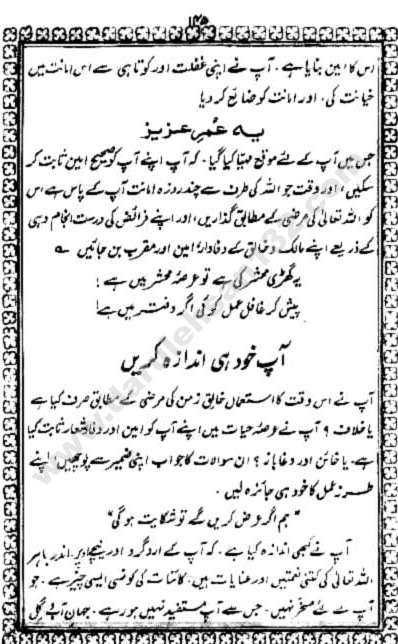 ۱۲۵
اس کا امین بنایا ہے۔ آپ نے اپنی غفلت اور کوتاہی سے اس امانت میں
خیانت کی، اور امانت کو ضائع کر دیا
یہ عُمرِ عزیز
جس میں آپ کے لئے موقع مہیا کیا گیا۔ کہ آپ اپنے آپ کو صحیح امین ثابت کر
سکیں، اور وقت جو اللہ کی طرف سے چند روزہ امانت آپ کے پاس ہے اس
کو اللہ تعالیٰ کی مرضی کے مطابق گذاریں، اور اپنے فرائض کی درست انجام دہی
کے ذریعے اپنے مالک و خالق کے وفادار امین اور مقرب بن جائیں ؎
یہ گھڑی محشر کی ہے تو عرصۂ محشر میں ہے!
پیش کر غافل عمل کوئی اگر دفتر میں ہے!
آپ خود ہی اندازہ کریں
آپ نے اس وقت کا استعمال خالقِ زمن کی مرضی کے مطابق صرف کیا ہے
یا خلاف؟ آپ نے عرصۂ حیات میں اپنے آپ کو امین اور وفا شعار ثابت کیا
ہے۔ یا خائن اور دغا باز؟ ان سوالات کا جواب اپنی ضمیر سے پوچھیں، اپنے
طرزِ عمل کا خود ہی جائزہ لیں۔
"ہم اگر عرض کریں گے تو شکایت ہو گی"
آپ نے کبھی اندازہ کیا ہے۔ کہ آپ کے ارد گرد اور نیچے اوپر، اندر باہر
اللہ تعالیٰ کی کتنی نعمتیں اور عنایات ہیں، کائنات کی کونسی ایسی چیز ہے۔ جو
آپ کے لئے مسخر نہیں۔ جس سے آپ مستفید نہیں ہو رہے۔ جہاں آپ کے لئے